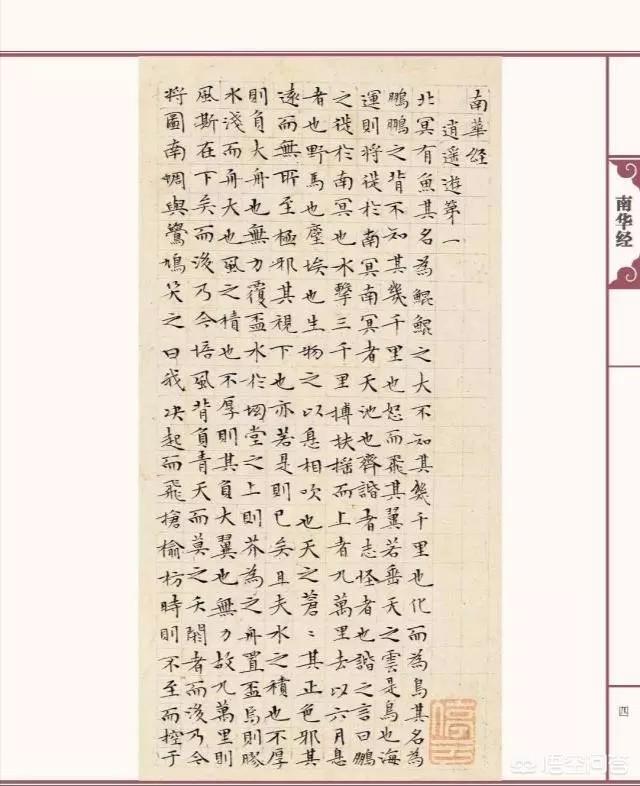 南華經
逍遥遊第一
北冥有魚其名為鯤鯤之大不知其幾千里也化而為鳥其名為
鵬鵬之背不知其幾千里也怒而飛其翼若垂天之雲是鳥也海
運則將徙於南冥南冥者天池也齊諧者志怪者也諧之言曰鵬
之徙於南冥也水擊三千里搏扶揺而上者九萬里去以六月息
者也野馬也塵埃也生物之以息相吹也天之蒼〻其正色邪其
遠而無所至極邪其視下也亦若是則已矣且夫水之積也不厚
則負大舟也無力覆盃水於坳堂之上則芥為之舟置盃焉則膠
水淺而舟大也風之積也不厚則其負大翼也無力故九萬里則
風斯在下矣而後乃今培風背負青天而莫之夭閼者而後乃今
將圖南蜩與鷽鳩笑之曰我决起而飛搶榆枋時則不至而控于
南华经
四
悟空问答